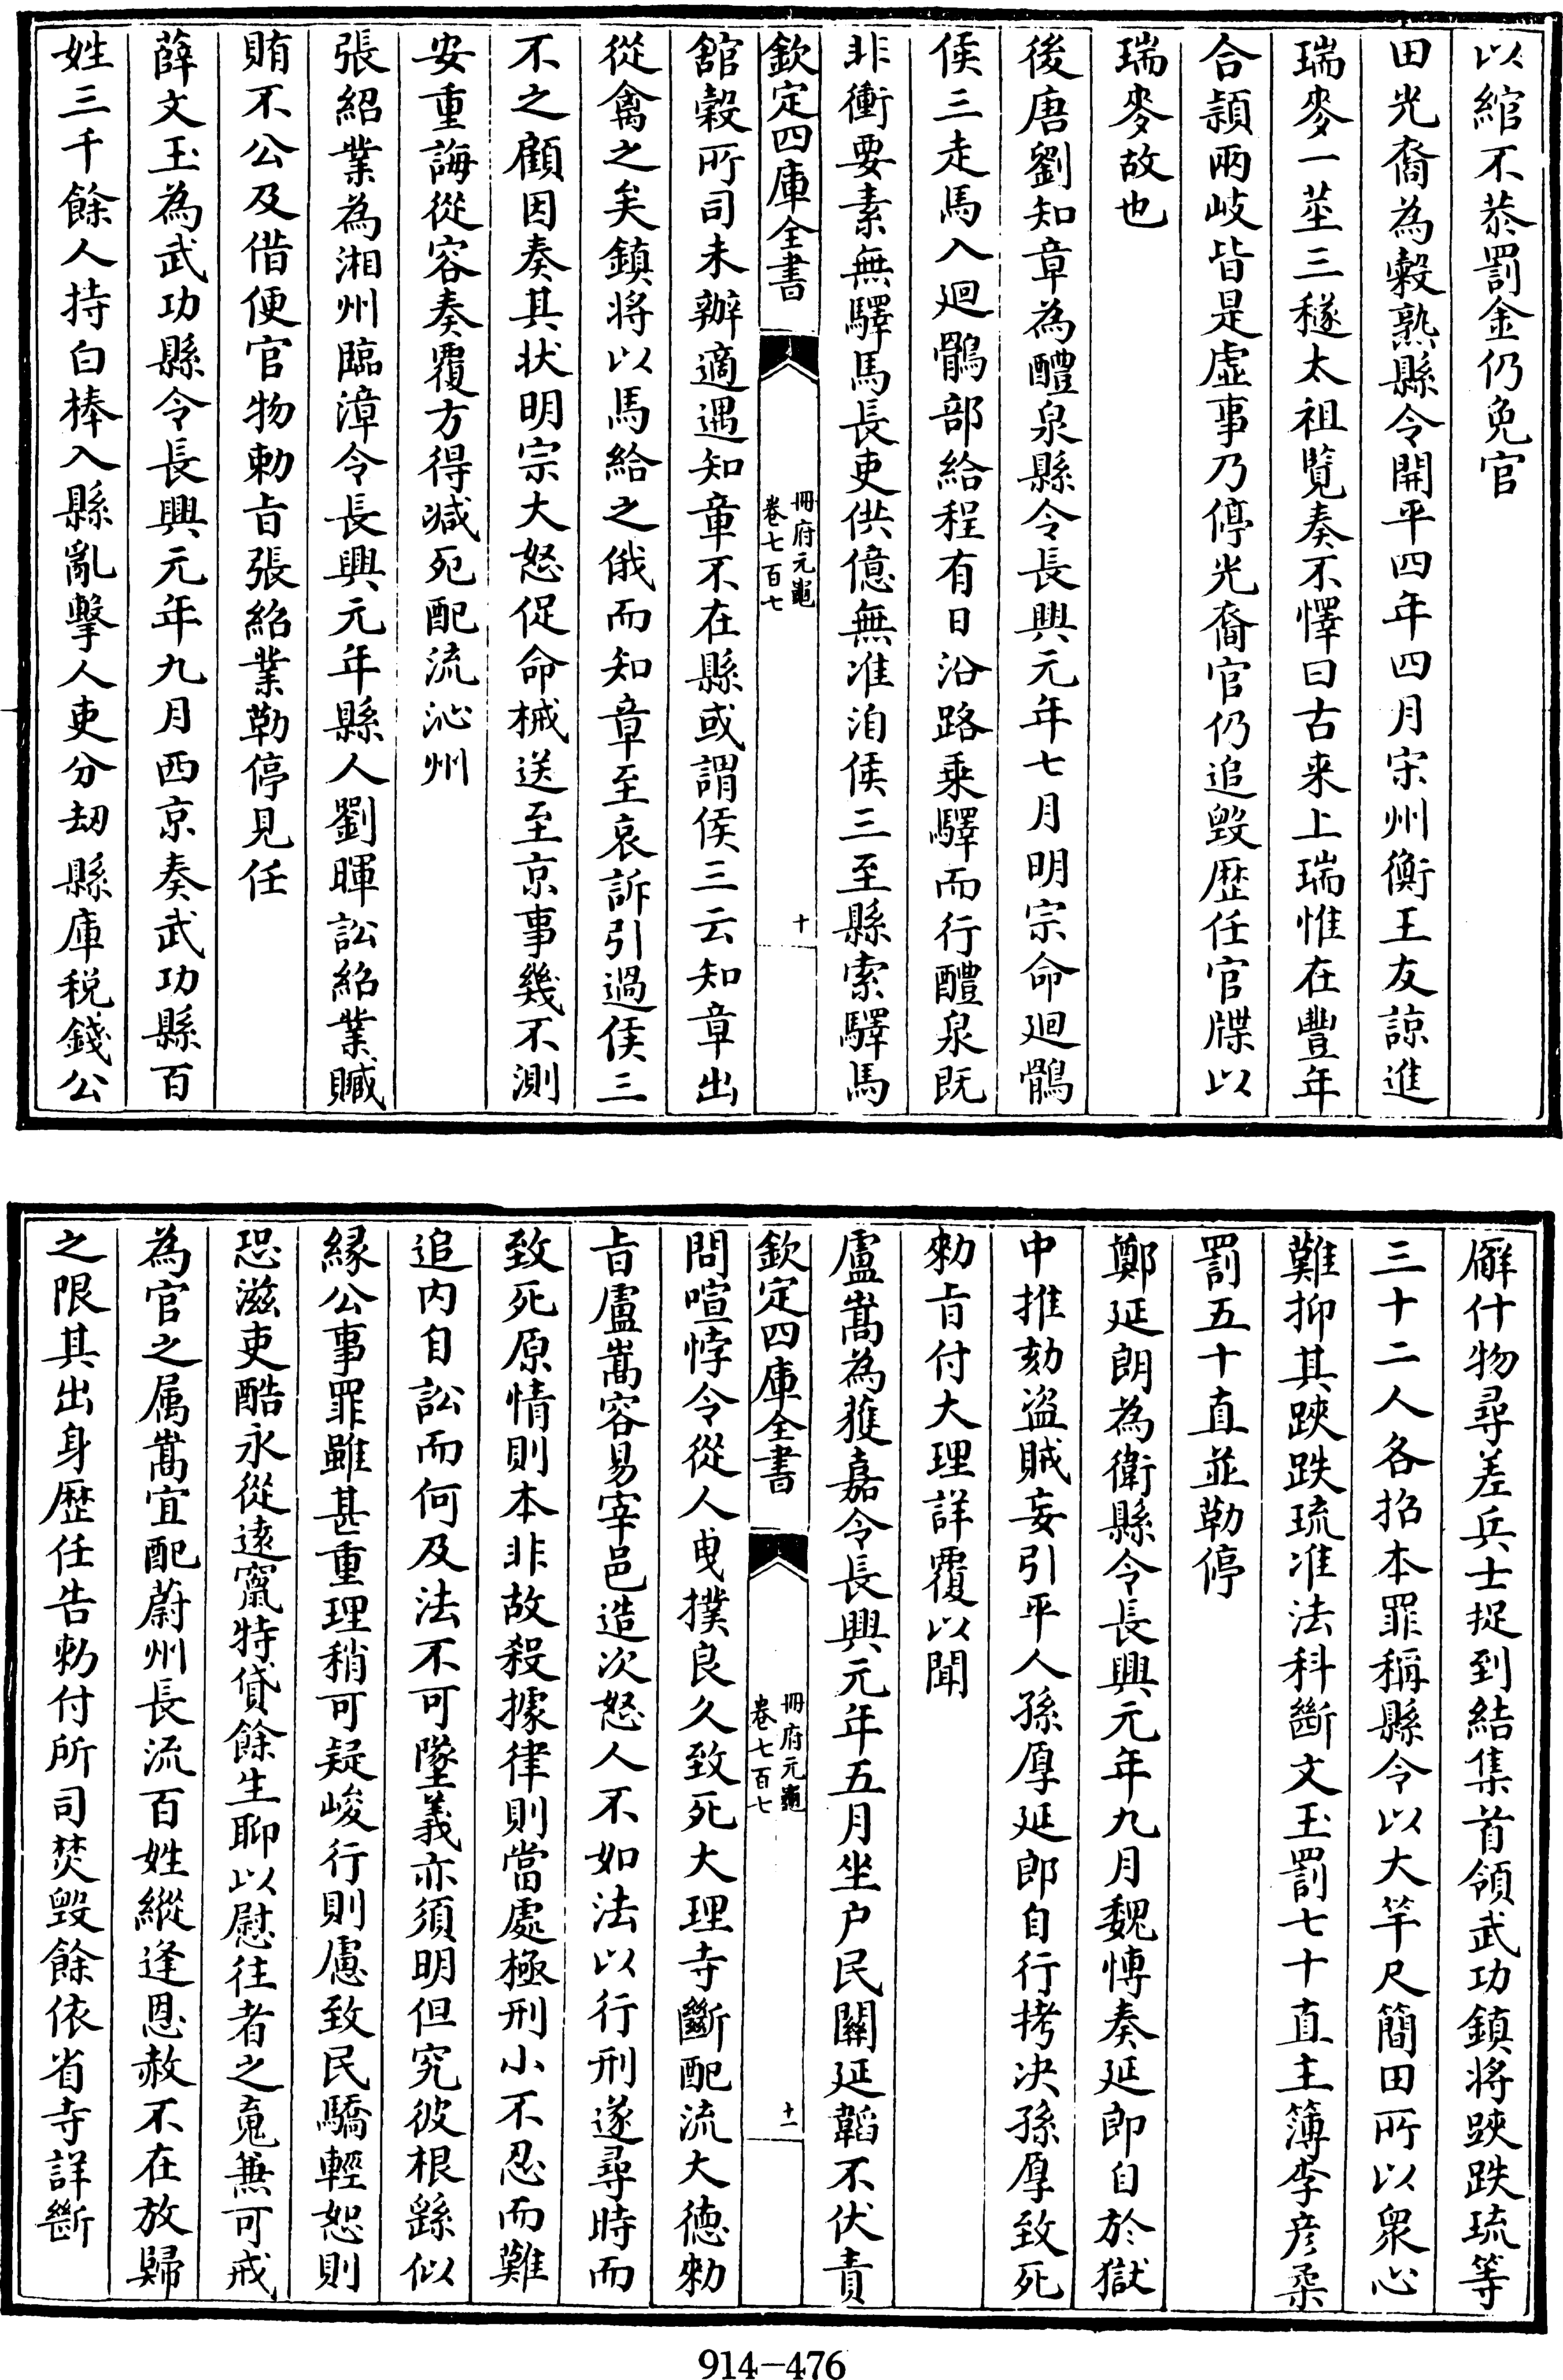 以綰不恭罰金仍免官
田光裔為穀熟縣令開平四年四月宋州衡王友諒進
瑞麥一莖三穟太祖覽奏不懌曰古來上瑞惟在豐年
合穎兩岐皆是虛事乃停光裔官仍追毀歷任官牒以
瑞麥故也
後唐劉知章為醴泉縣令長興元年七月明宗命廻鶻
侯三走馬入廻鶻部給程有日沿路乘驛而行醴泉既
非衝要素無驛馬長吏供億無准洎侯三至縣索驛馬
欽定四庫全書
冊府元龜
卷七百七
十
舘穀所司未辦適遇知章不在縣或謂侯三云知章出
從禽之矣鎮將以馬給之俄而知章至哀訴引過侯三
不之顧因奏其狀明宗大怒促命械送至京事幾不測
安重誨從容奏覆方得減死配流沁州
張紹業為湘州臨漳令長興元年縣人劉暉訟紹業贓
賄不公及借便官物勅旨張紹業勒停見任
薛文玉為武功縣令長興元年九月西京奏武功縣百
姓三千餘人持白棒入縣亂擊人吏分刼縣庫稅錢公
廨什物尋差兵士捉到結集首領武功鎮將䟴跌琉等
三十二人各招本罪稱縣令以大竿尺簡田所以衆心
難抑其䟴跌琉准法科斷文玉罰七十直主簿李彦柔
罰五十直並勒停
鄭延朗為衛縣令長興元年九月魏博奏延郎自於獄
中推劾盜賊妄引平人孫厚延郎自行拷决孫厚致死
勅旨付大理詳覆以聞
盧嵩為獲嘉令長興元年五月坐户民關延韜不伏責
欽定四庫全書
冊府元龜
卷七百七
十一
問喧悖令從人曳撲良久致死大理寺斷配流大德勅
旨盧嵩容易宰邑造次怒人不如法以行刑遂尋時而
致死原情則本非故殺據律則當處極刑小不忍而難
追内自訟而何及法不可墜義亦須明但究彼根繇似
緣公事罪雖甚重理稍可疑峻行則慮致民驕輕恕則
恐滋吏酷永從遠竄特貸餘生聊以慰往者之寃兼可戒
為官之属嵩宜配蔚州長流百姓縱逢恩赦不在放歸
之限其出身歷任告勅付所司焚毀餘依省寺詳斷
914-476